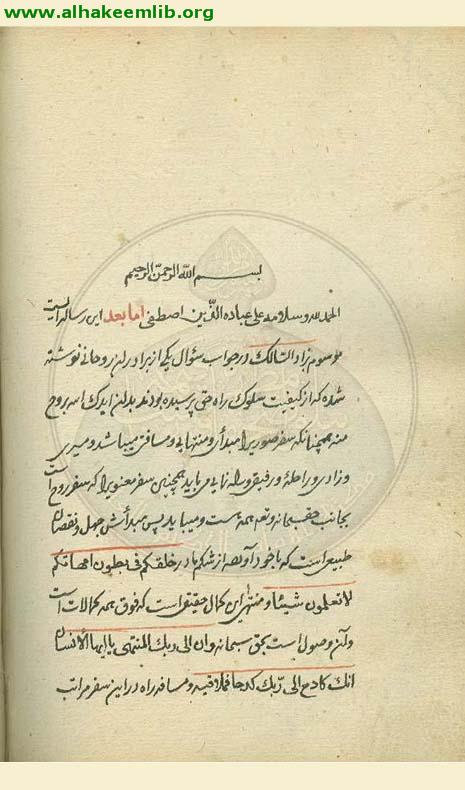 www.alhakeemlib.org
بسم الله الرحمن الرحیم
الحمد لله وسلامه علی عباده الذین اصطفی اما بعد این رساله ایست
موسوم بزاد السالک در جواب سؤال یکی از برادران روحانی نوشته
شده که از کیفیت سلوک راه حق پرسیده بودند بدان ایدک الله بروح
منه همچنانکه سفر صوریرا مبدأی ومنتهایی ومسافتی میباشد ومیری
وزادی وراحلهٔ ورفیقی وراه نمایی می باید همچنین سفر معنویرا که سفر روح است
بجانب حق سبحانه وتعالی همه هست ومیباید پس مبدأش جهل ونقصان
طبیعی است که با خود آورده از شکم مادر خلقکم فی بطون امهاتکم
لا تعلمون شیئا ومنتهای این کمال حقیقی است که فوق همه کمالات است
وآن وصول است بحق سبحانه وان الی ربک المنتهی یا ایها الانسان
انک کادح الی ربک کدحا فملاقیه ومسافه راه در این سفر مراتب